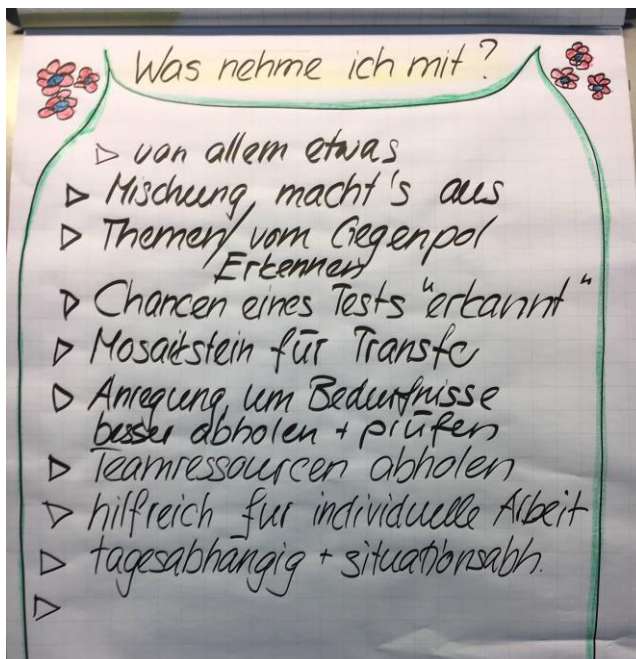 Was nehme ich mit?
▷ von allem etwas
▷ Mischung macht's aus
▷ Themen/vom Gegenpol
Erkennen
▷ Chancen eines Tests "erkannt"
▷ Mosaikstein für Transfe
▷ Anregung um Bedurfnisse
besser abholen + prüfen
▷ Teamressourcen abholen
▷ hilfreich fur individuelle Arbeit
▷ tagesabhängig + situationsabh.
▷